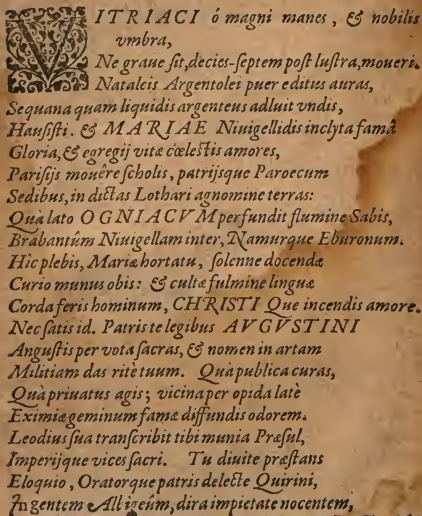 VITRIACI ó magni manes, & nobilis
vmbra,
Ne graue ſit, decies-ſeptem poſt luſtra, moueri.
Nataleis Argentolei puer editus auras,
Sequana quam liquidis argenteus adluit vndis,
Hauſiſti. & MARIAE Niuigellidis inclyta famâ
Gloria, & egregij vitæ cœleſtis amores,
Pariſijs mouêre ſcholis, patrijsque Paroecum
Sedibus, in dictas Lothari agnomine terras:
Quà lato OGNIACVM perfundit flumine Sabis,
Brabantûm Niuigellam inter, Namurque Eburonum.
Hîc plebis, Mariæ hortatu, ſolenne docendæ
Curio munus obis: & cultæ fulmine linguæ
Corda feris hominum, CHRISTI Que incendis amore.
Nec ſatis id. Patris te legibus AVGVSTINI
Anguſtis per vota ſacras, & nomen in artam
Militiam das ritè tuum. Quà publica curas,
Quà priuatus agis; vicina per opida latè
Eximiæ geminum famæ diffundis odorem.
Leodius ſua tranſcribit tibi munia Præſul,
Imperijque vices ſacri. Tu diuite præſtans
Eloquio, Oratorque patris delecte Quirini,
In gentem Albigeûm, dira impietate nocentem,